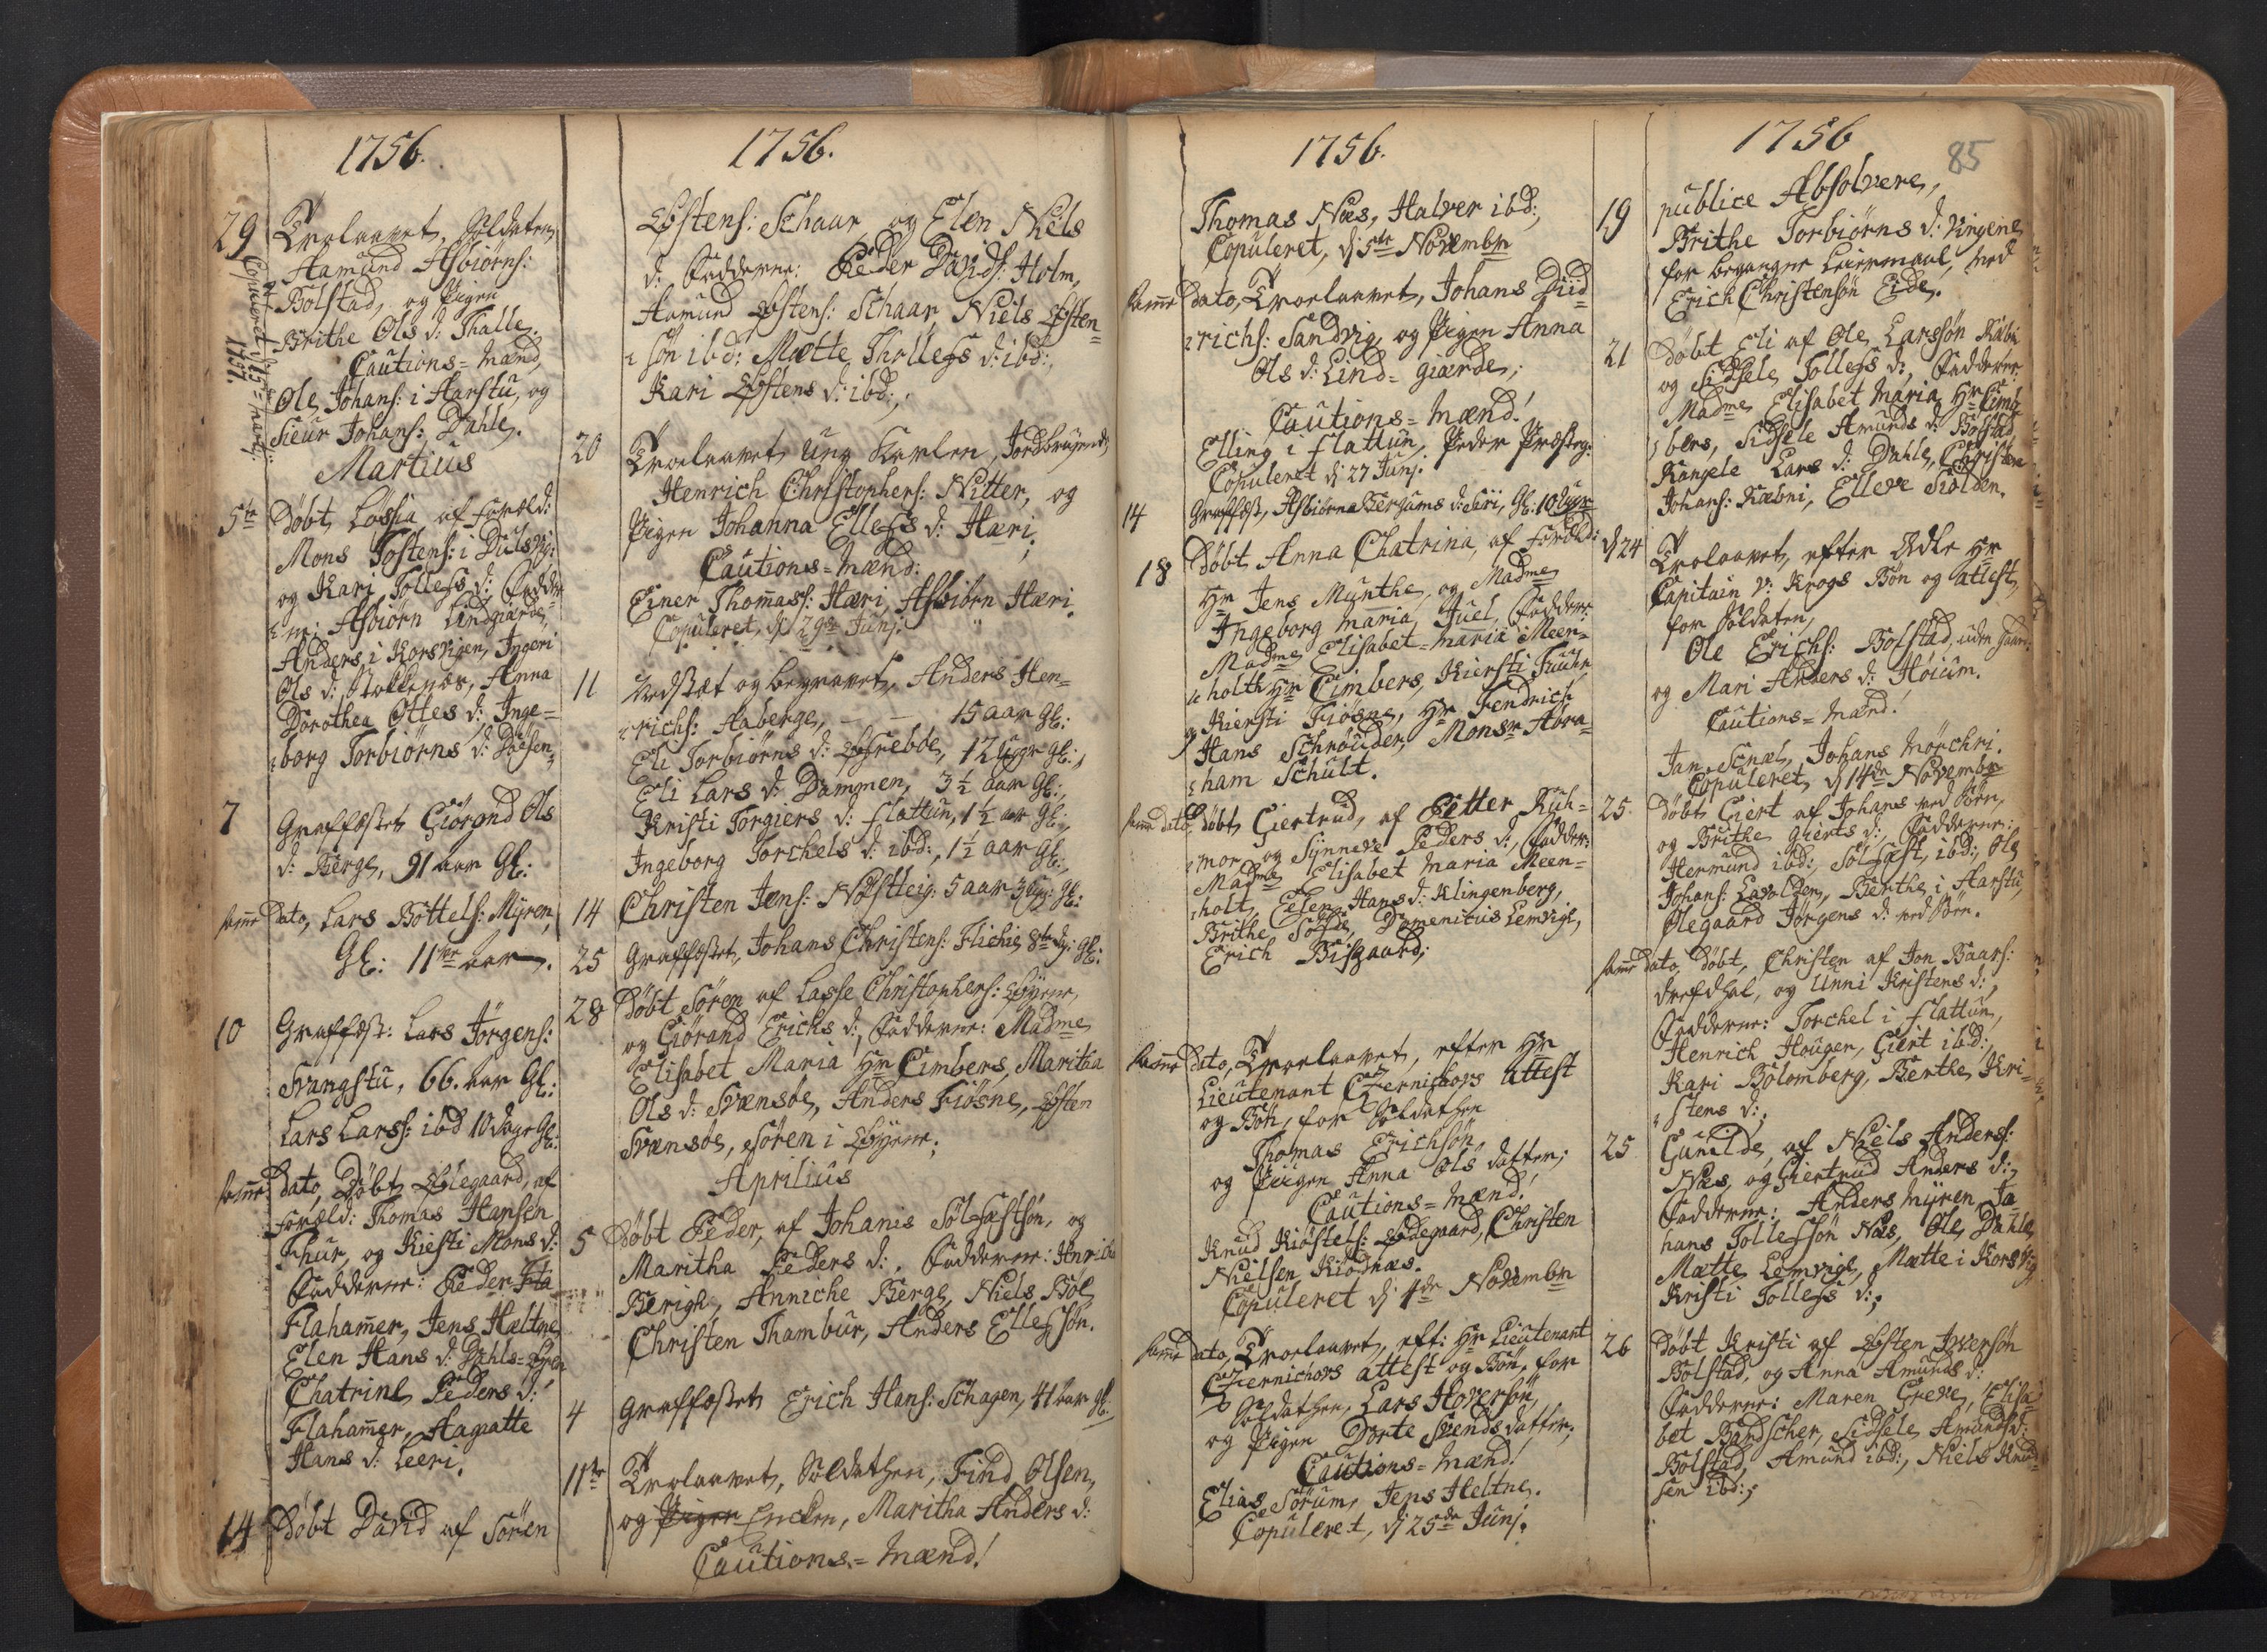 1756.
29 Trolaavet, Soldaten
Aamund Asbiørns:
Bolstad, og Pigen
Brithe Ols d: Thalle.
Cautions=Mænd,
Ole Johans: i Harstu, og
Sieur Johans: Dahle.
Copuleret
1757.
Martius
5te Døbt, Lossia, af Foreld:
Mons Tostens: i Dulsvig:
og Kari Tollefs d: Fadde
rne: Asbiørn Lindgiærde,
Anders i Korsvigen, Ingeri
Ols d: Stokkenæs, Anna
Dorothea Ottes d: Inge=
borg Torbiørns d: Døsen
7 Graffæstet Giørond Ols
d: Berge, 91 aar Gl:
samme Dato, Lars Bottels: Myren,
Gl: 11 aar.
10 Graffæst: Lars Jørgens:
Svangstu, 66. aar Gl:
Lars Larss: ibd 10 Dage Gl:
samme Dato, Døbt Olegaard, af
Foræld: Thomas Hansen
Fhur, og Kiesti Mons d:
Fadderne: Peder Fla
Flahamer, Jens Hæltne
Elen Hans d: Dahls=Ører
Chatrine Peders d:
Flahamer, Aagatte
Hans d: Leeri.
14 Døbt David af Søren
1756.
Østens: Schaar, og Elen Niels
d: Fadderne: Peder Davids: Holm,
Aamund Østens: Schaar Niels Østen=
søn ibd: Mætte Thollefs d: ibd:,
Kari Østens d: ibd:,
20 Trolaavet Ung Karlen Jordbrugende
Henrich Christophers: Nitter, og
Pigen Johanna Ellefs d: Hæri;
Cautions=Mænd:
Einer Thomass: Hæri, Asbiørn Hæri.
Copuleret, d: 29de Junj.
11 Indsæt og begravet, Anders Hen=
richs: Aaberge, — — 15 aar Gl:
Eli Torbiørns d: Øfrebøe, 12 uger Gl:,
Eli Lars d: Dammen, 3½ aar Gl:,
Kristi Torgiers d: Flattun, 1½ aar Gl:,
Ingeborg Torchels d: ibd:, 1½ aar Gl:,
14 Christen Jens: Nosfleig: 5 aar 3 Uger Gl:
25 Graffæstet, Johans Christens: Flichie, 8te Dg: Gl:
28 Døbt Søren af Lasse Christophers: Øyrene,
og Giørand Erichs d:, Fadderne: Madme
Elisabet Maria Hr Cimbers, Maritha
Ols d: Svensøe, Anders Fiøsne, Østen
Svensøe, Søren i Øyrene;
Aprilius
5 Døbt Peder, af Johanis Sølfæstsøn, og
Maritha Peders d:, Fadderne: Anrich
Berige, Anniche Berge, Niels Bøe,
Christen Thambur, Anders Ellefsøn.
4 Graffæstet Erich Hans: Schagen, 41 aar Gl:
11te Trolaavet, Soldathen, Find Olsen,
og Pigen Encken, Maritha Anders d:
Cautions=Mænd!
1756.
Thomas Næs, Halver ibd:,
Copuleret, d: 5te Novembr
samme Dato, Troelaavet, Johans Diid=
richs: Sandvig og Pigen Anna
Ols d: Lind=giærde;
Cautions=Mænd!
Elling i Flattun, Peder Præsteg:
Copuleret d: 27 Junj:
14 Graffæst, Asbiørna Bergums d: Eri, Gl: 10 Uger
18 Døbt Anna Chatrina, af Foreld:
Hr Jens Munthe, og Madme
Ingeborg Maria Juel, Fadder:
Madme Elisabet=Maria Meen=
holth Hr Cimbers, Kiersti Fuuhr,
og Kiersti Fiøsne, Hr Fendrich
Hans Schrøuder, Monsr Abra=
ham Schult.
samme Dato, Døbt, Giertrud, af Petter Kuh=
mor, og Synneve Peders d:, Fadder:
Madme Elisabet Maria Meen=
holt, Elsen Hans d: Klingenberg,
Brithe Sofde, Domenicus Lemvige,
Erich Bisgaard;
samme Dato, Troelaavet, efter Hr
Lieutenant Czernichovs Attest
og Bøn, for Soldathen
Thomas Erichsøn,
og Pigen Anna Ols datter;
Cautions=Mænd!
Knud Kiøstels: Ødegaard, Christen
Nielsen Kiødnæs.
Copuleret d: 4de Novembr
samme Dato, Troelaavet, eft: Hr Lieutenant
Czernichovs attest og Bøn, for
Soldathen, Lars Hoversøn,
og Pigen Dorte Svends datter;
Cautions=Mænd!
Elias Sørum, Jens Heltne.
Copuleret, d: 25de Junj.
1756
85
publice Absolvere,
19 Brithe Torbiørns d: Vigene
for begangne Leiermaal, med
Erich Christensøn Eide.
21 Døbt Eli af Ole Larssøn Kæbn
og Sidsele Tollefs d:, Fadderne:
Madme Elisabet Maria Hr Cim=
bers, Sidsele Amunds d: Bolstad
Rangele Lars d: Dahle, Christen
Johans: Kæbni, Elleve Siolden.
d: 24 Trolaavet, efter Ædle Hr
Capitain v: Krogs Bøn og attest,
for Soldaten,
Ole Erichs: Bolstad, uden Gaard:
og Mari Anders d: Høium.
Cautions=Mænd!
Jan Scnæl, Johans Mørchri.
Copuleret, d: 14de Novembr
25. Døbt Giert af Johans ved Søen,
og Brithe Gierts d:, Fadderne:
Hermund ibd:, Sølfæst, ibd:, Ole
Johans: Lavolden, Berthe i Harstu,
Olegaard Jørgens d: ved Søen.
samme Dato, Døbt, Christen af Jon Baars:
Drefdhal, og Unni Kristens d:,
Fadderne: Torchel i Flattun,
Henrich Hougen, Giert ibd:,
Kari Bolomberg, Berthe Kri=
stens d:,
25 Gunilde, af Niels Anders:
Næs, og Giertrud Anders d:,
Fadderne: Anders Myren Jo
hans Tollefsøn Næs, Ole Dahle,
Mætte Lemvige, Mætte i Korsvig
Kristi Tollefs d:;
26 Døbt Kristi af Østen Iversøn
Bolstad, og Anna Amunds d:
Fadderne: Maren Greve, Elisa=
bet Bardscher, Sidsele Amunds d:
Bolstad, Amund ibd:, Niels Knud=
sen ibd:;